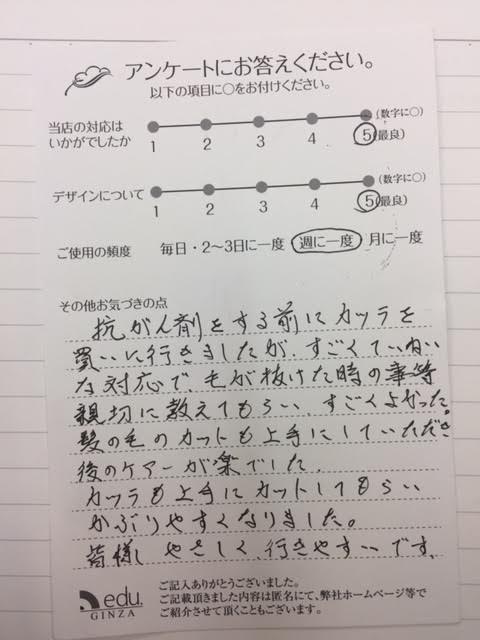 アンケートにお答えください。
以下の項目に○をお付けください。
当店の対応は
いかがでしたか
1 2 3 4 5 (最良)
(数字に○)
デザインについて
1 2 3 4 5 (最良)
(数字に○)
ご使用の頻度 毎日・2〜3日に一度 週に一度 月に一度
その他お気づきの点
抗がん剤をする前にカツラを
買いに行きましたが、すごくていねい
な対応で、毛が抜けた時の事等
親切に教えてもらい、すごくよかった。
髪の毛のカットも上手にしていただき
後のケアーが楽でした。
カツラも上手にカットしてもらい
かぶりやすくなりました。
皆様し やさしく、行きやすいです、
edu.
GINZA
ご記入ありがとうございました。
ご記載頂きました内容は匿名にて、弊社ホームページ等で
ご紹介させて頂くこともございます。